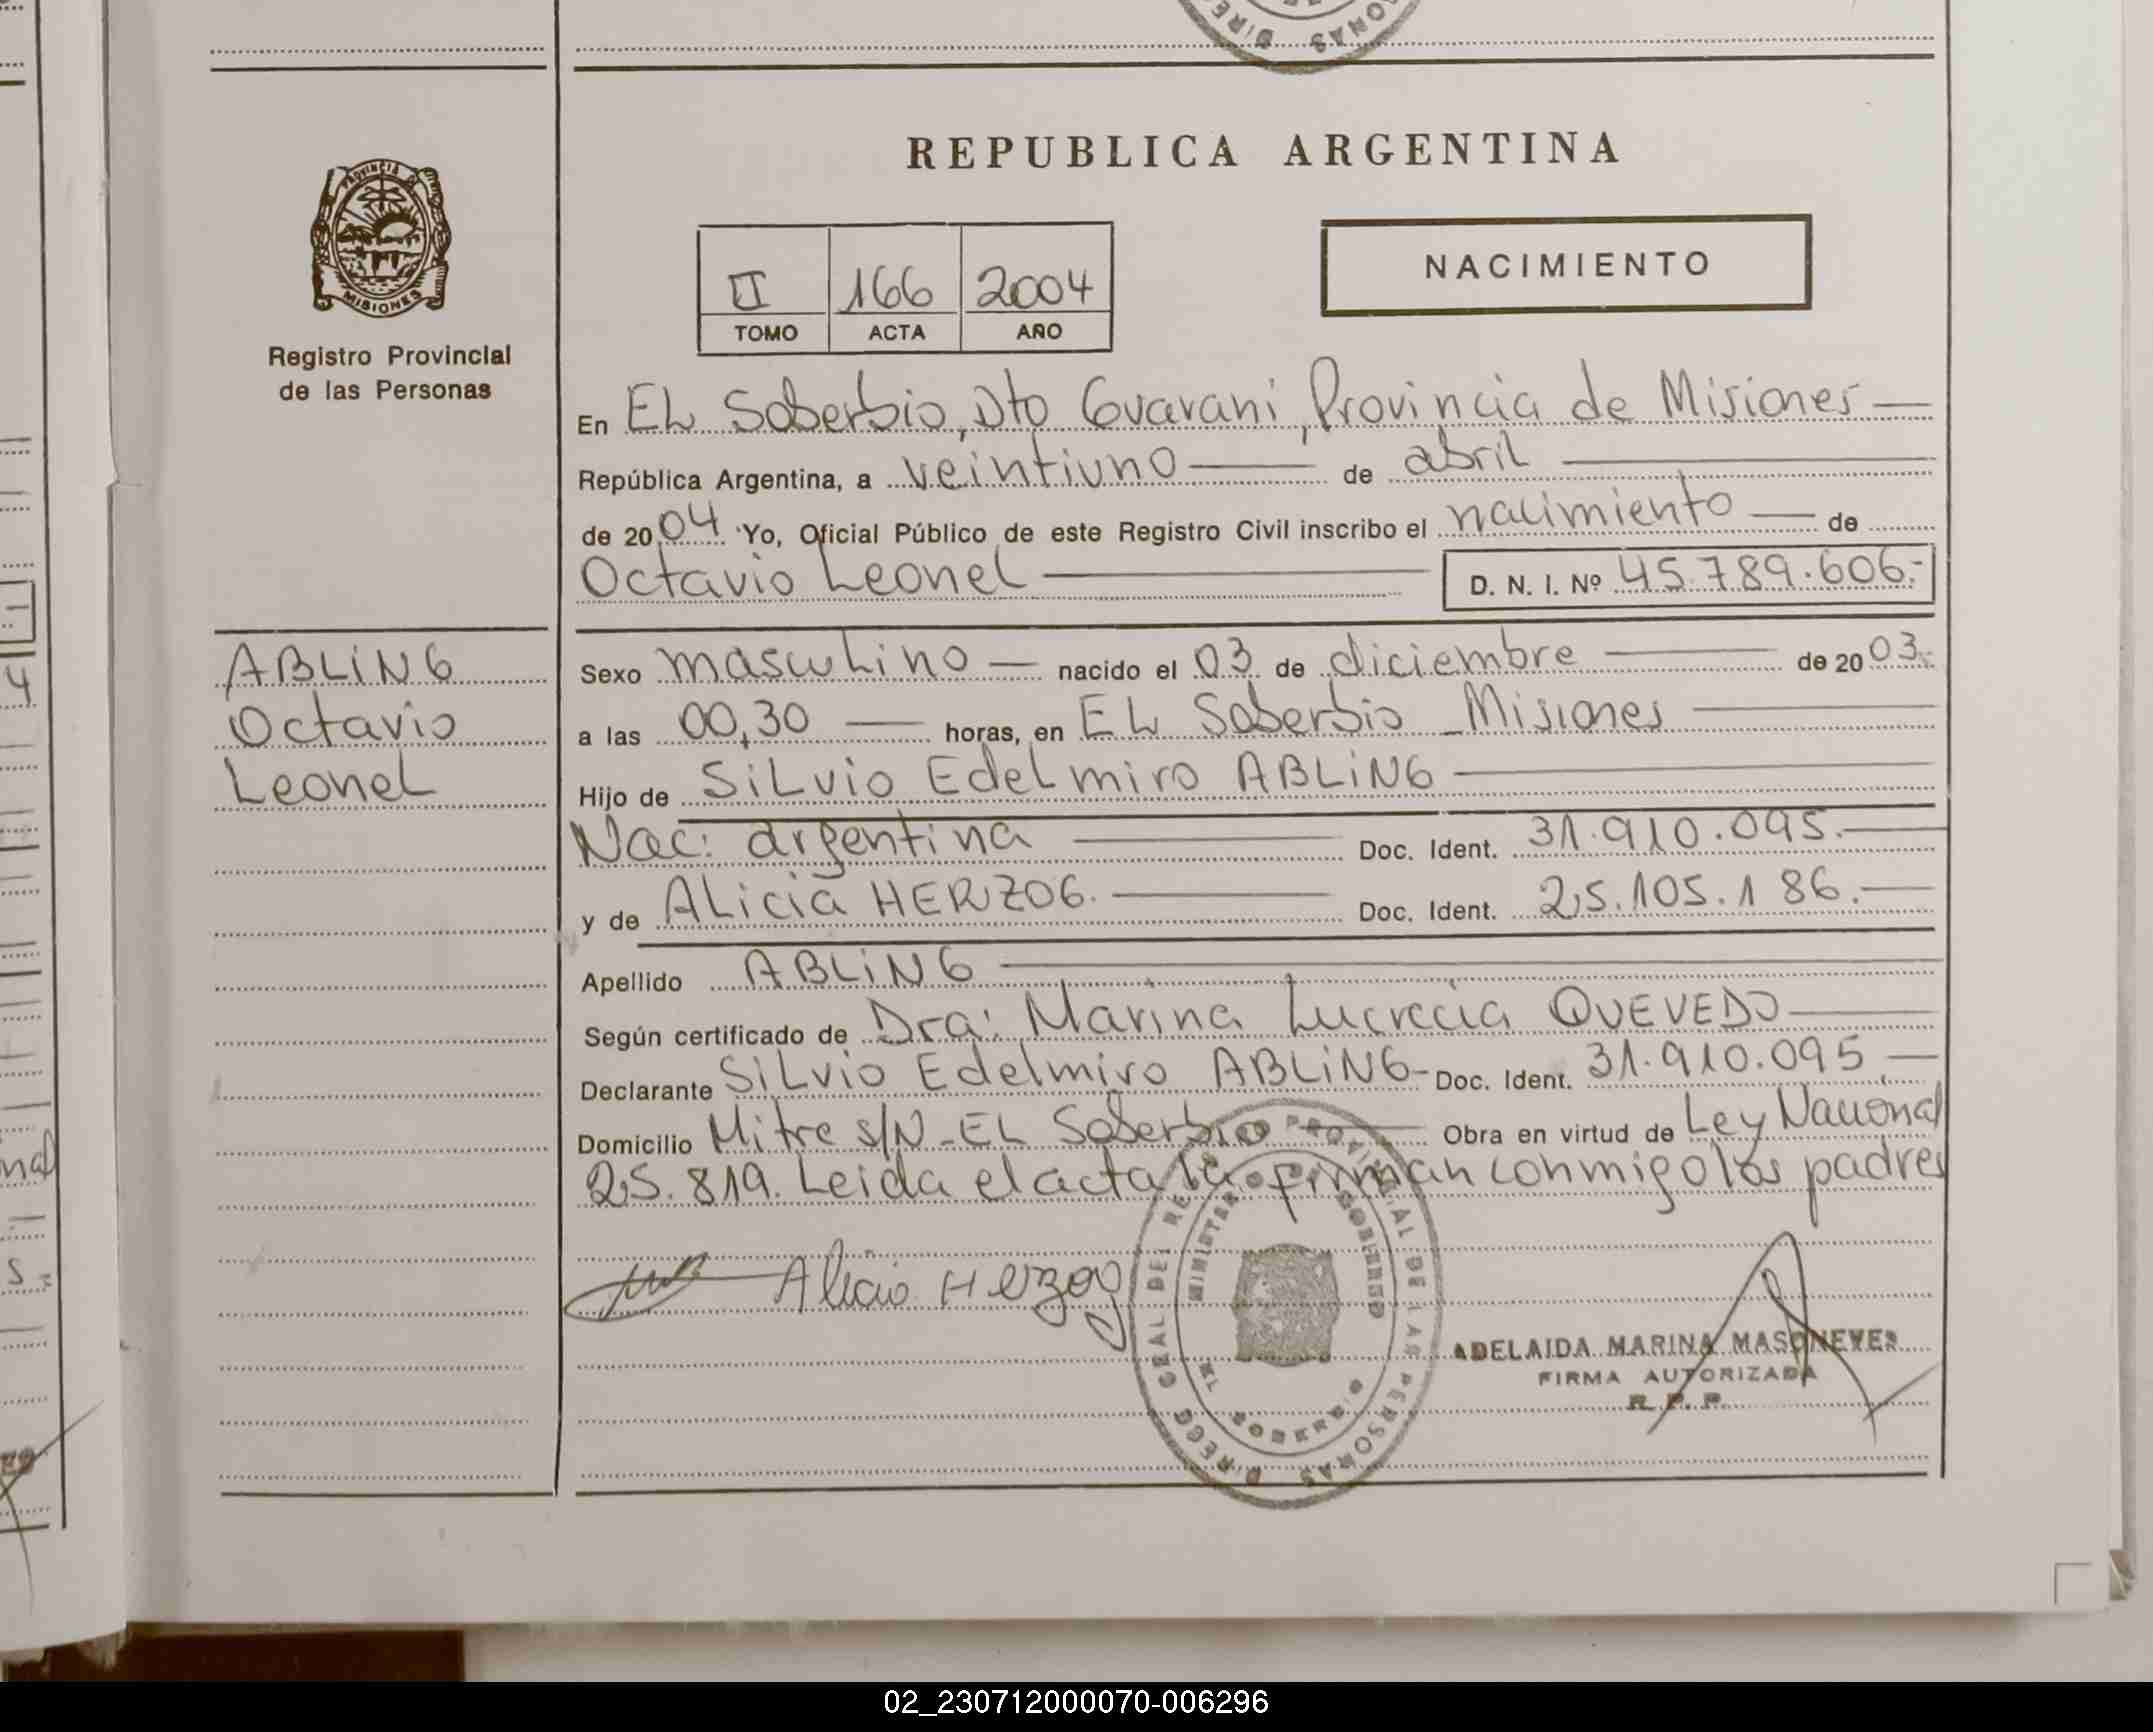 REPUBLICA ARGENTINA
PROVINCIA DE
MISIONES
Registro Provincial
de las Personas
II 166 2004
TOMO ACTA AÑO
NACIMIENTO
En EL Soberbio, Dto Guarani, Provincia de Misiones
República Argentina, a veintiuno de abril
de 2004 Yo, Oficial Público de este Registro Civil inscribo el nacimiento de
Octavio Leonel D. N. I. Nº 45.789.606.-
ABLING
Octavio
Leonel
Sexo masculino nacido el 03 de diciembre de 2003.
a las 00,30 horas, en EL Soberbio _ Misiones
Hijo de SiLvio EdeLmiro ABLiNG
Nac: argentina Doc. Ident. 31.910.095.
y de ALicia HERZOG. Doc. Ident. 25.105.186.
Apellido ABLiNG
Según certificado de Dra: Marina Lucrecia QUEVEDO
Declarante SiLvio Edelmiro ABLiNG- Doc. Ident. 31.910.095
Domicilio Mitre s/N - EL Soberbio Obra en virtud de Ley Nacional
25.819. Leida el acta la firman conmigo los padres
Alicia Herzog
DIRECC GRAL DEL REG PROVINCIAL DE LAS PERSONAS
MINISTERIO DE GOBIERNO
EL SOBERBIO
ADELAIDA MARINA MASONEVES
FIRMA AUTORIZADA
R. P. P.
02_230712000070-006296